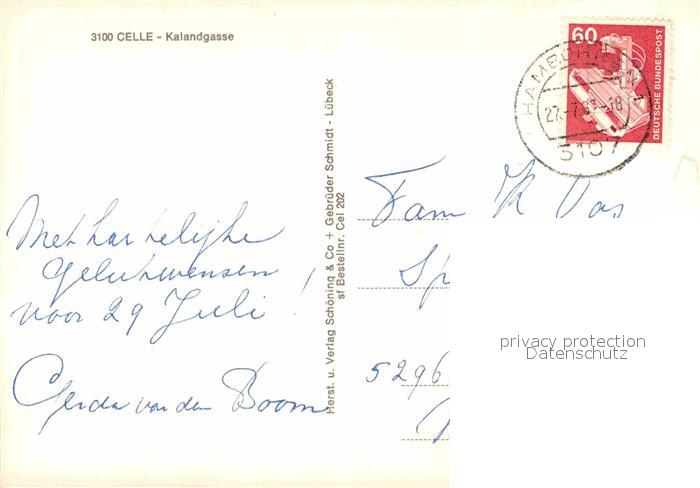 3100 CELLE - Kalandgasse
60
DEUTSCHE BUNDESPOST
HAMBÜHREN 1
27.-7.8 -18
3107
Met hartelijke
gelukwensen
voor 29 Juli!
Gerda van den Boom
Herst. u. Verlag Schöning & Co + Gebrüder Schmidt - Lübeck
sf Bestellnr. Cel 202
Fam K Vos
Sp
5296
privacy protection
Datenschutz